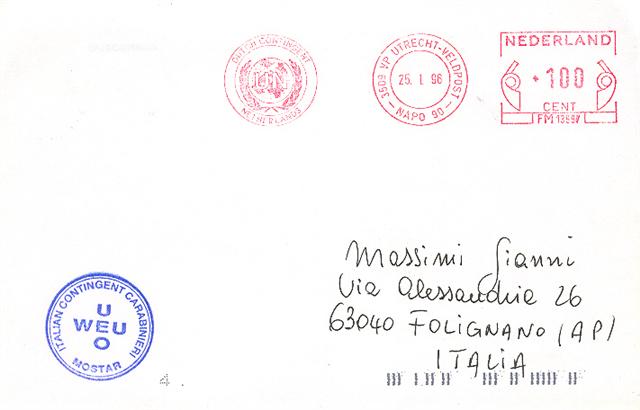 DUTCH CONTINGENT
UN
NETHERLANDS
3509 VP UTRECHT-VELDPOST
25. 1. 96
- NAPO 90 -
NEDERLAND
100
CENT
FM 13597
Massimi Gianni
Via Alessandria 26
63040 FOLIGNANO (AP)
ITALIA
ITALIAN CONTINGENT CARABINIERI
U
WEU
O
MOSTAR
4